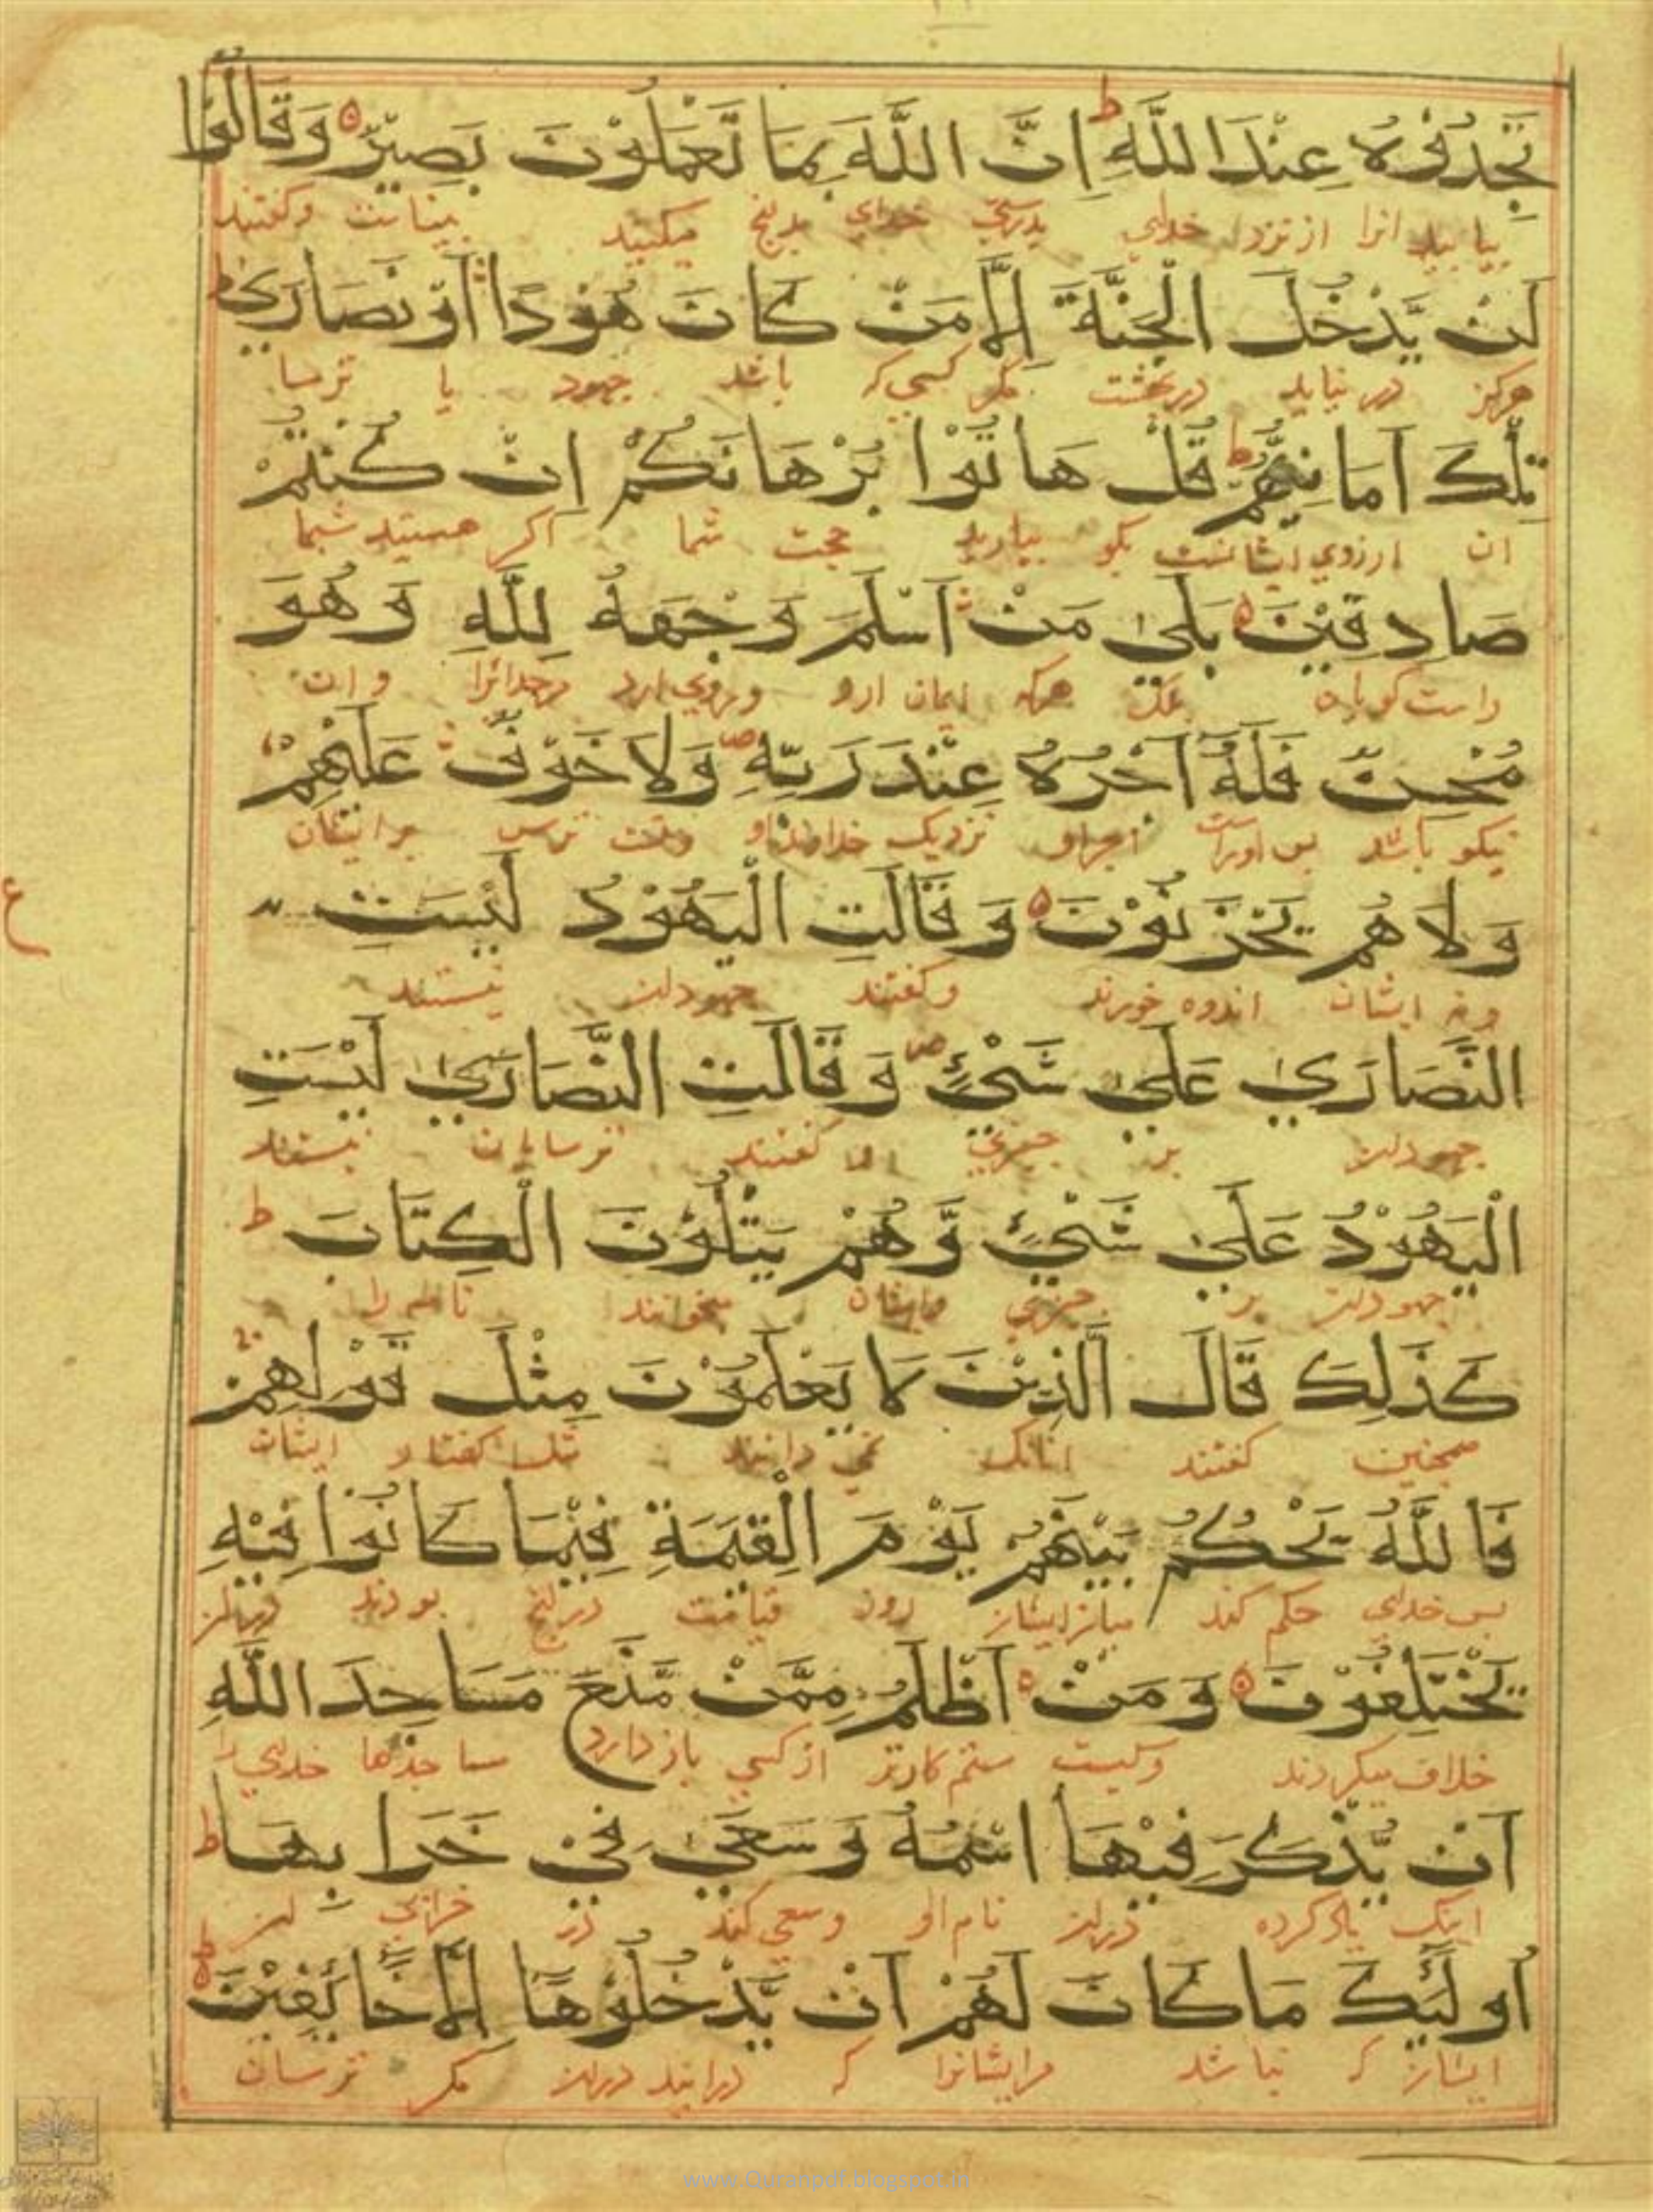 تَجِدُوْهُ عِنْدَ اللَّهِ ط اِنَّ اللَّهَ بِمَا تَعْمَلُوْنَ بَصِيْرٌ ٥ وَقَالُوْا
بیابید انرا از نزد خدای بدرستی خدای بدنج میکنید بیناست وکفتند
لَنْ يَّدْخُلَ الْجَنَّةَ اِلَّا مَنْ كَانَ هُوْدًا اَوْ نَصَارَىٰ ط
هرکز در نیاید در بهشت مکر کسی که باشد جهود یا ترسا
تِلْكَ اَمَانِيُّهُمْ ط قُلْ هَاتُوْا بُرْهَانَكُمْ اِنْ كُنْتُمْ
ان ارزوی ایشانست بکو بیارید حجت شما اکر هستید شما
صَادِقِيْنَ ٥ بَلٰى مَنْ اَسْلَمَ وَجْهَهُ لِلَّهِ وَهُوَ
راست کویان هرکه ایمان ارد وروی ارد وان
مُحْسِنٌ فَلَهُ اَجْرُهُ عِنْدَ رَبِّهِ ص وَلَا خَوْفٌ عَلَيْهِمْ
نیکو باشد بس اوراست اجر او نزدیک خداوند او ونیست ترس بر ایشان
وَلَا هُمْ يَحْزَنُوْنَ ٥ وَقَالَتِ الْيَهُوْدُ لَيْسَتِ
ونه ایشان اندوه خورند وکفتند جهودان نیستند
ع
النَّصَارَىٰ عَلٰى شَيْءٍ ص وَقَالَتِ النَّصَارَىٰ لَيْسَتِ
جهودان بر چیزی و کفتند ترسایان نیستند
الْيَهُوْدُ عَلٰى شَيْءٍ وَّهُمْ يَتْلُوْنَ الْكِتَابَ ط
جهودان بر چیزی وایشان میخوانند نامه را
كَذٰلِكَ قَالَ الَّذِيْنَ لَا يَعْلَمُوْنَ مِثْلَ قَوْلِهِمْ
همچنین کفتند انانک نمی دانند مثل کفتار ایشان
فَاللَّهُ يَحْكُمُ بَيْنَهُمْ يَوْمَ الْقِيٰمَةِ فِيْمَا كَانُوْا فِيْهِ
بس خدای حکم کند میان ایشان روز قیامت در انج بودند دران
يَخْتَلِفُوْنَ ٥ وَمَنْ اَظْلَمُ مِمَّنْ مَّنَعَ مَسَاجِدَ اللَّهِ
خلاف میکردند وکیست ستم کارتر از کسی باز دارد مساجدها خدای را
اَنْ يُّذْكَرَ فِيْهَا اسْمُهُ وَسَعٰى فِيْ خَرَابِهَا ط
اینک یاد کرده دران نام او وسعی کند در خرابی ان
اُولٰئِكَ مَا كَانَ لَهُمْ اَنْ يَّدْخُلُوْهَا اِلَّا خَائِفِيْنَ ط
ایشان که نباشد مرایشانرا که درایند دران مکر ترسان
www.Quranpdf.blogspot.in